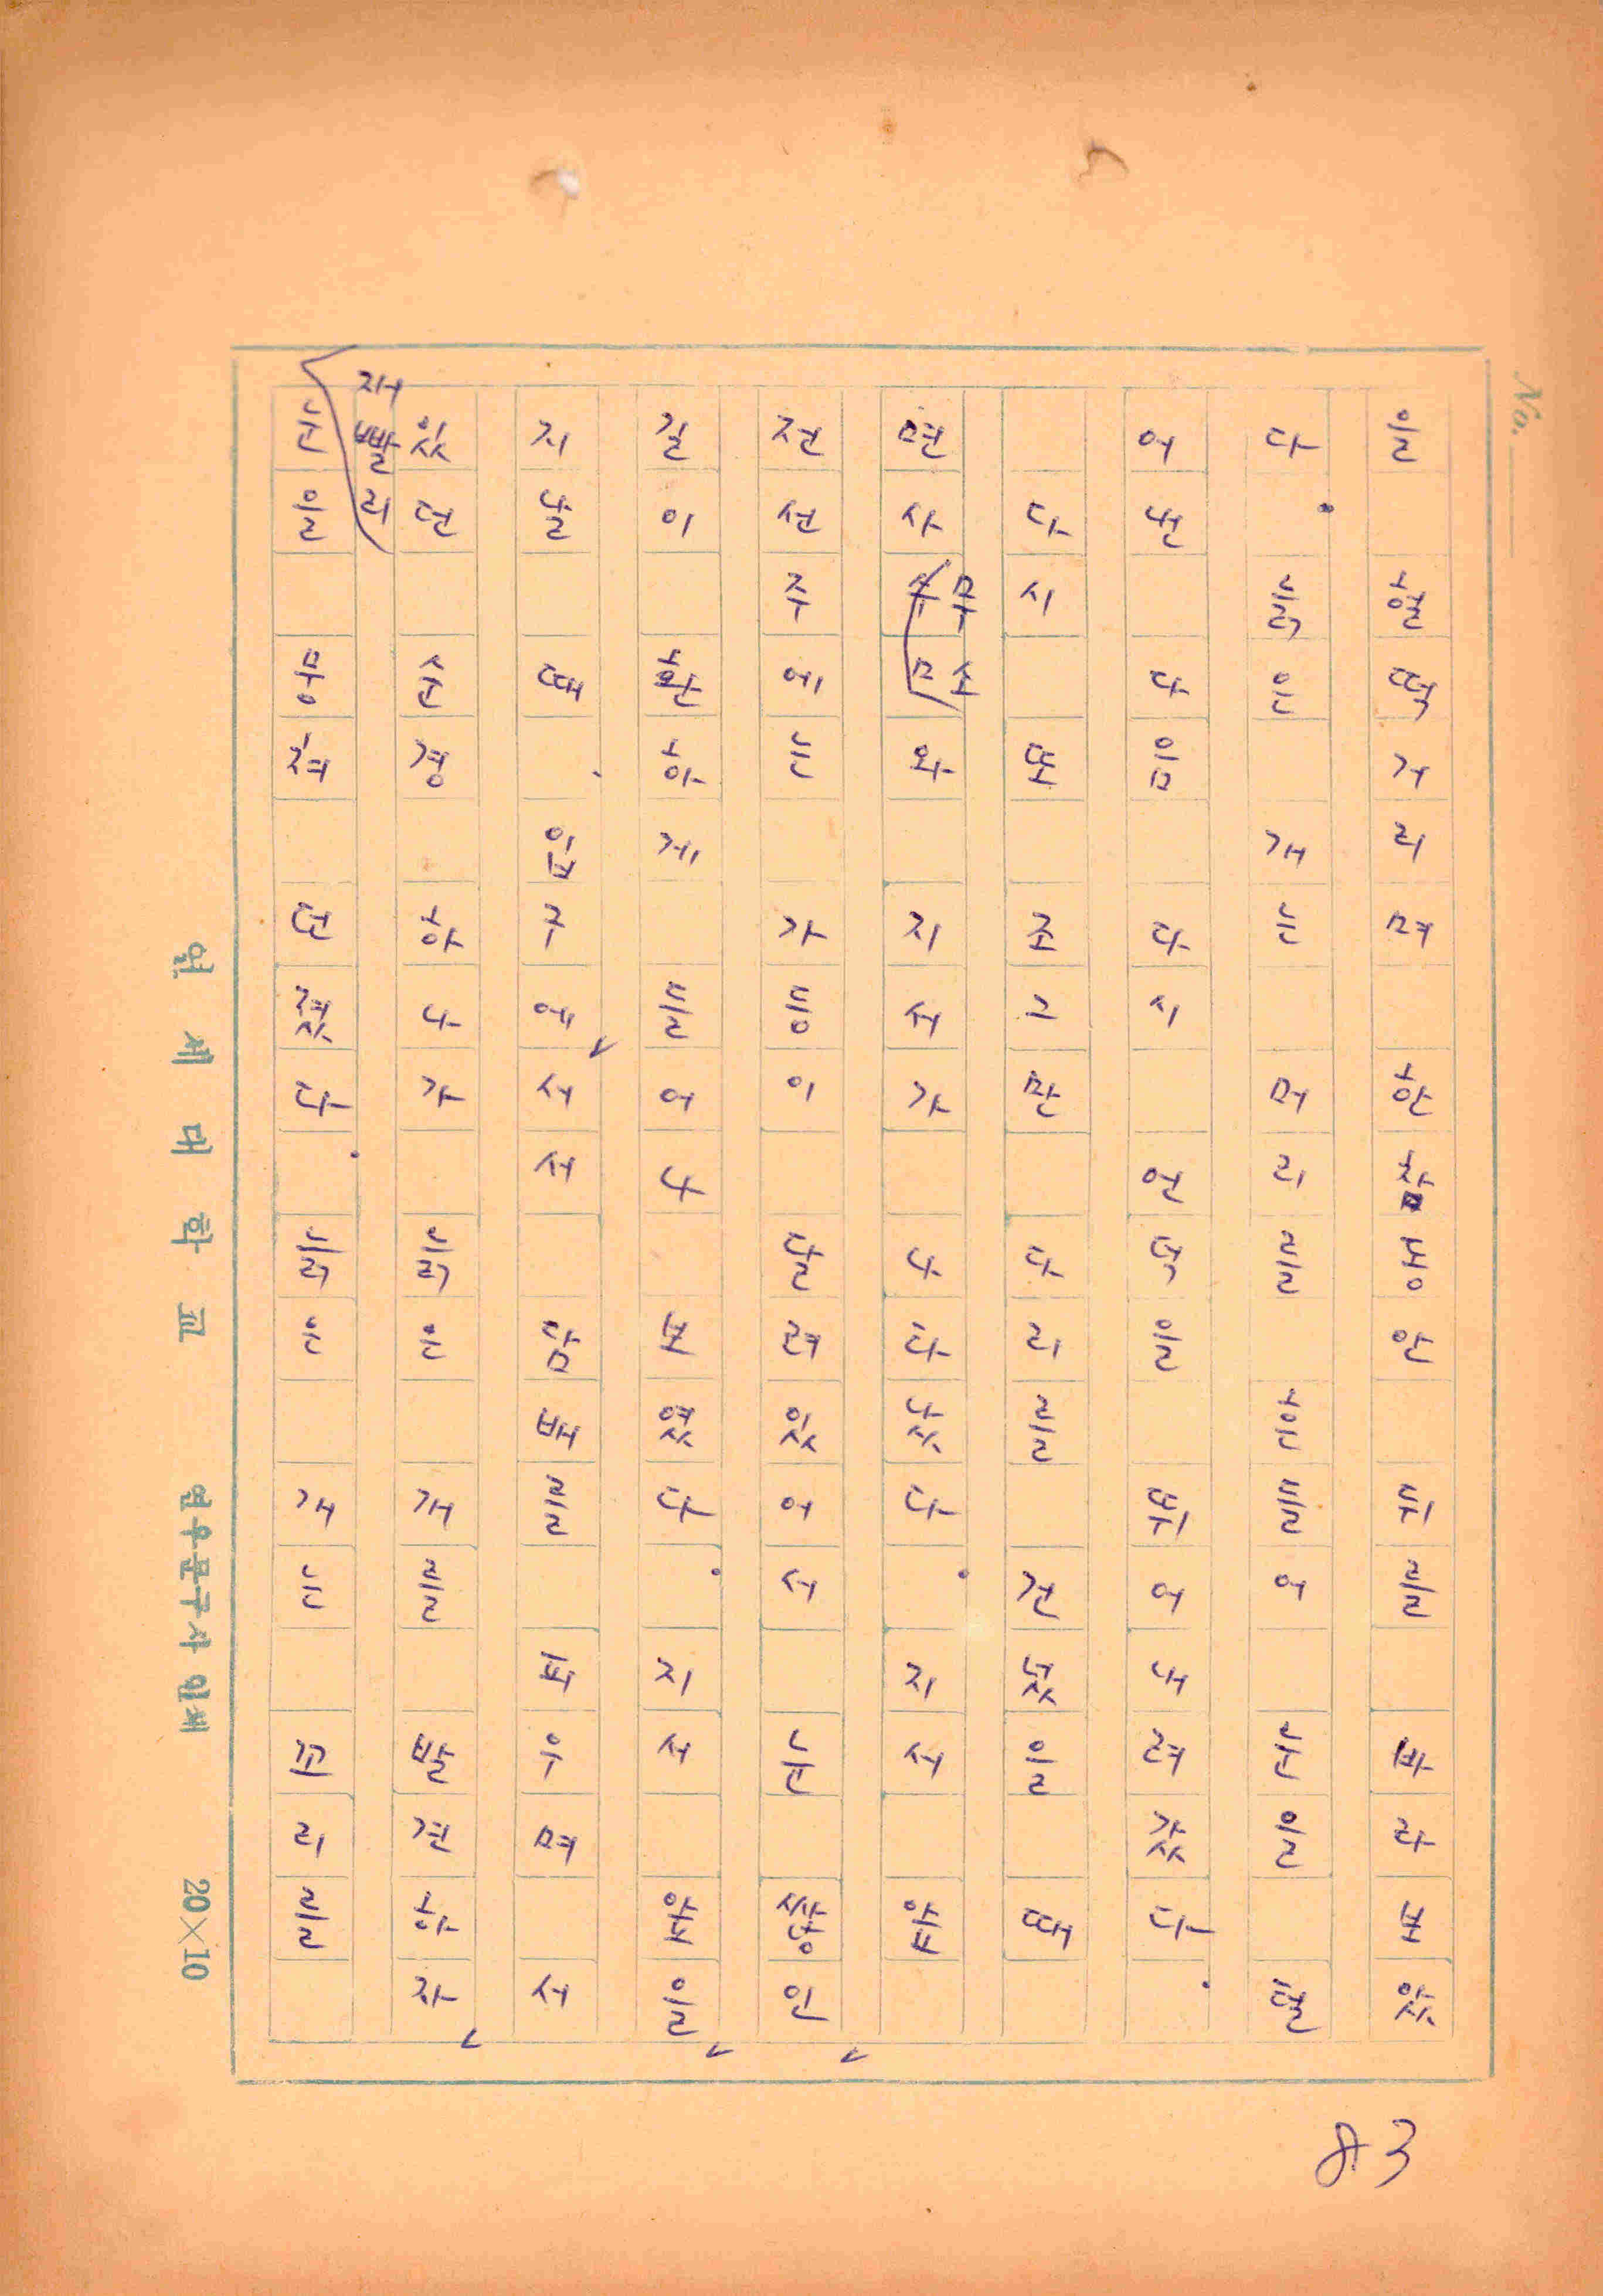 No.
을 헐떡거리며 한참동안 뒤를 바라보았
다. 늙은 개는 머리를 흔들어 눈을 털
어낸 다음 다시 언덕을 뛰어내려갔다.
다시 또 조그만 다리를 건넜을 때
면사무소와 지서가 나타났다. 지서 앞
전선주에는 가등이 달려있어서 눈 쌓인
길이 환하게 들어나 보였다. 지서 앞을
지날 때, 입구에 서서 담배를 피우며 서
있던 순경 하나가 늙은 개를 발견하자
재빨리 눈을 뭉쳐 던졌다. 늙은 개는 꼬리를
연세대학교 연우문구사 인쇄 20×10
83